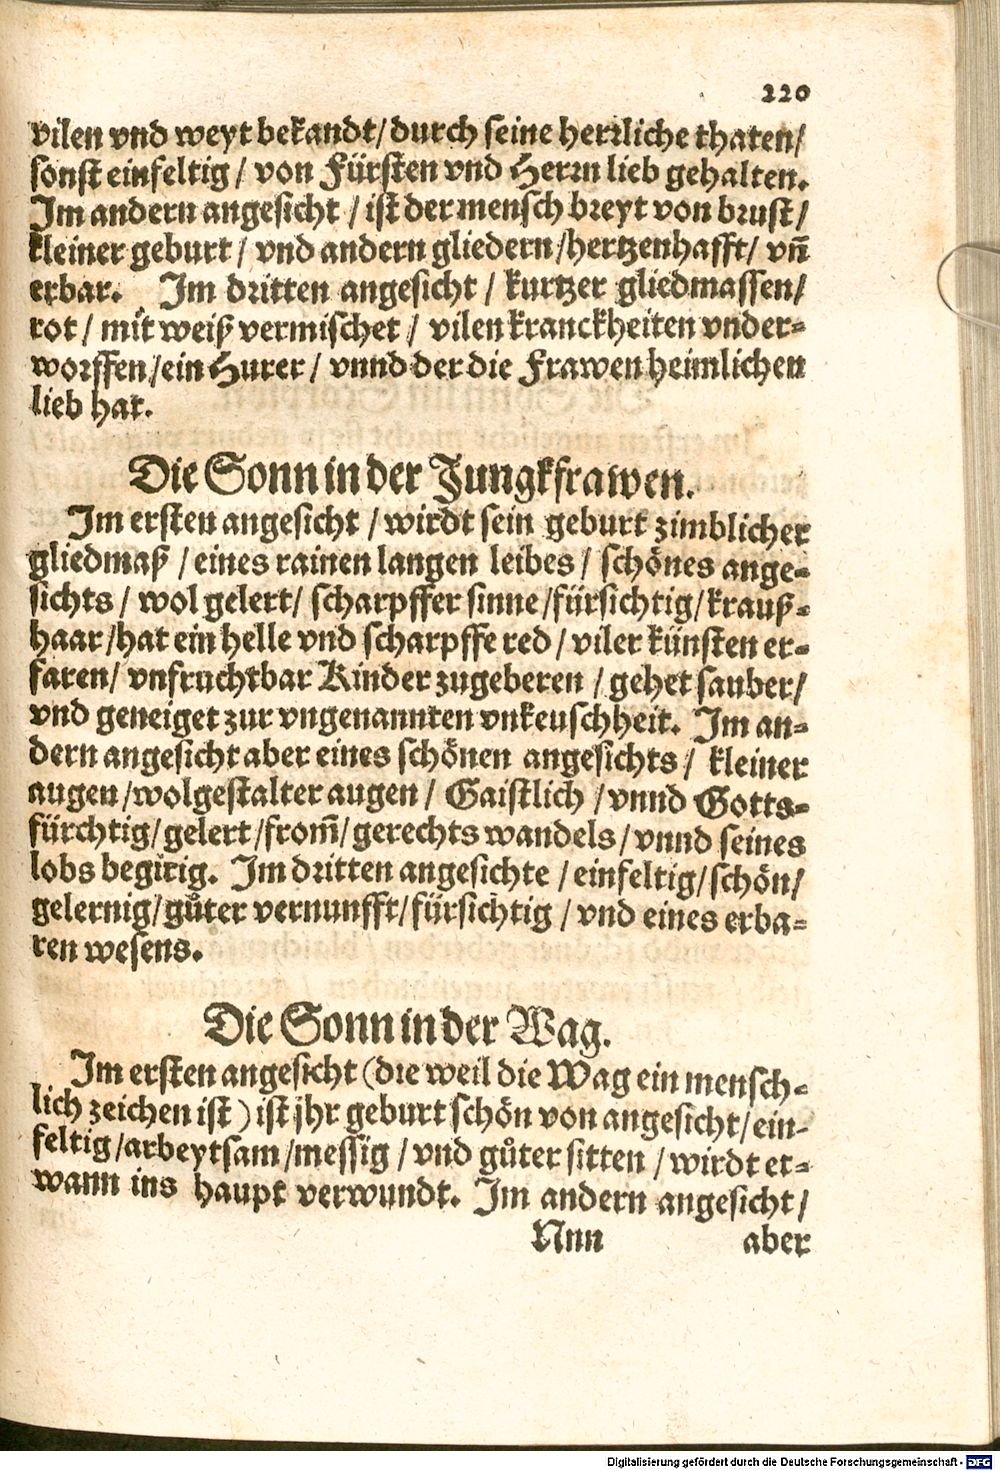 220
vilen vnd weyt bekandt/ durch seine herrliche thaten/
sonst einfeltig / von Fürsten vnd Herrn lieb gehalten.
Im andern angesicht / ist der mensch breyt von brust /
kleiner geburt / vnd andern gliedern /hertzenhafft/ vn̄
erbar. Im dritten angesicht / kurtzer gliedmassen/
rot / mit weiß vermischet / vilen kranckheiten vnder-
worffen /ein Hurer / vnnd der die Frawen heimlichen
lieb hat.
Die Sonn in der Jungkfrawen.
Im ersten angesicht / wirdt sein geburt zimblicher
gliedmaß / eines rainen langen leibes / schönes ange-
sichts / wol gelert/ scharpffer sinne /fürsichtig/ krauß-
haar /hat ein helle vnd scharpffe red / viler künsten er-
faren/ vnfruchtbar Kinder zugeberen / gehet sauber/
vnd geneiget zur vngenannten vnkeuschheit. Im an-
dern angesicht aber eines schönen angesichts / kleiner
augen /wolgestalter augen / Gaistlich / vnnd Gotts-
fürchtig/ gelert /from̄/ gerechts wandels / vnnd seines
lobs begirig. Im dritten angesichte / einfeltig/ schön/
gelernig/ gůter vernunfft/ fürsichtig / vnd eines erba-
ren wesens.
Die Sonn in der Wag.
Im ersten angesicht (die weil die Wag ein mensch-
lich zeichen ist ) ist jhr geburt schön von angesicht/ ein-
feltig /arbeytsam /messig / vnd gůter sitten / wirdt et-
wann ins haupt verwundt. Im andern angesicht /
Nnn aber
Digitalisierung gefördert durch die Deutsche Forschungsgemeinschaft - DFG